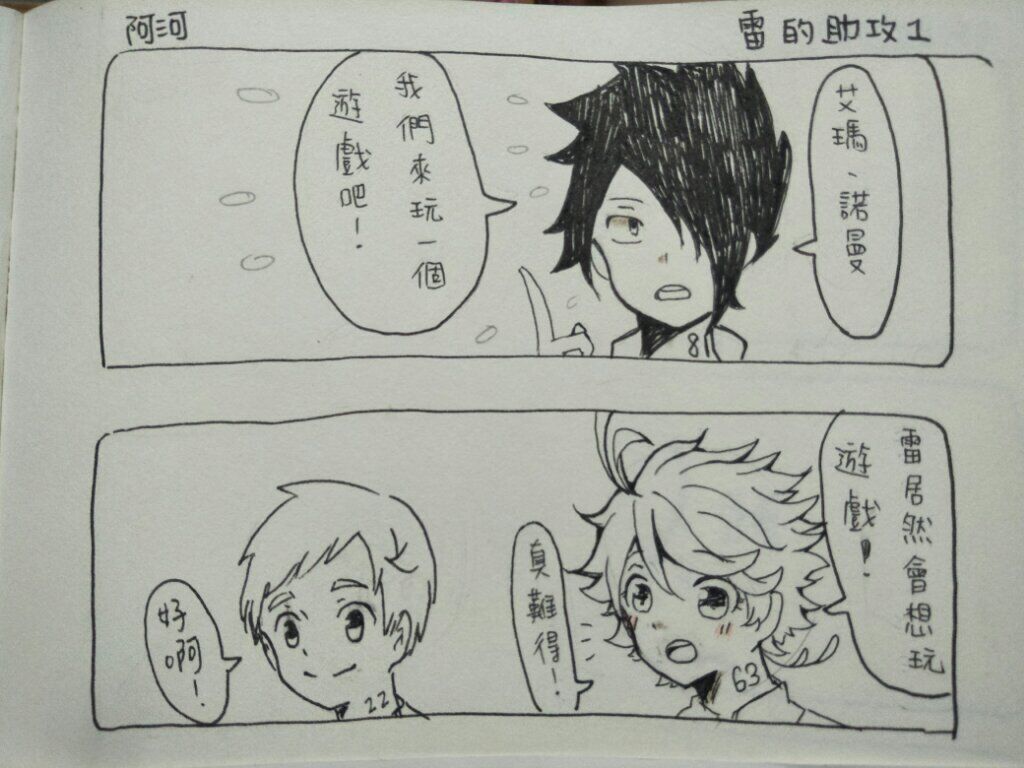 阿河
雷的助攻1
艾瑪、諾曼
我們來玩一個
遊戲吧！
81
雷居然會想玩
遊戲！
真難得！
63
好啊！
22